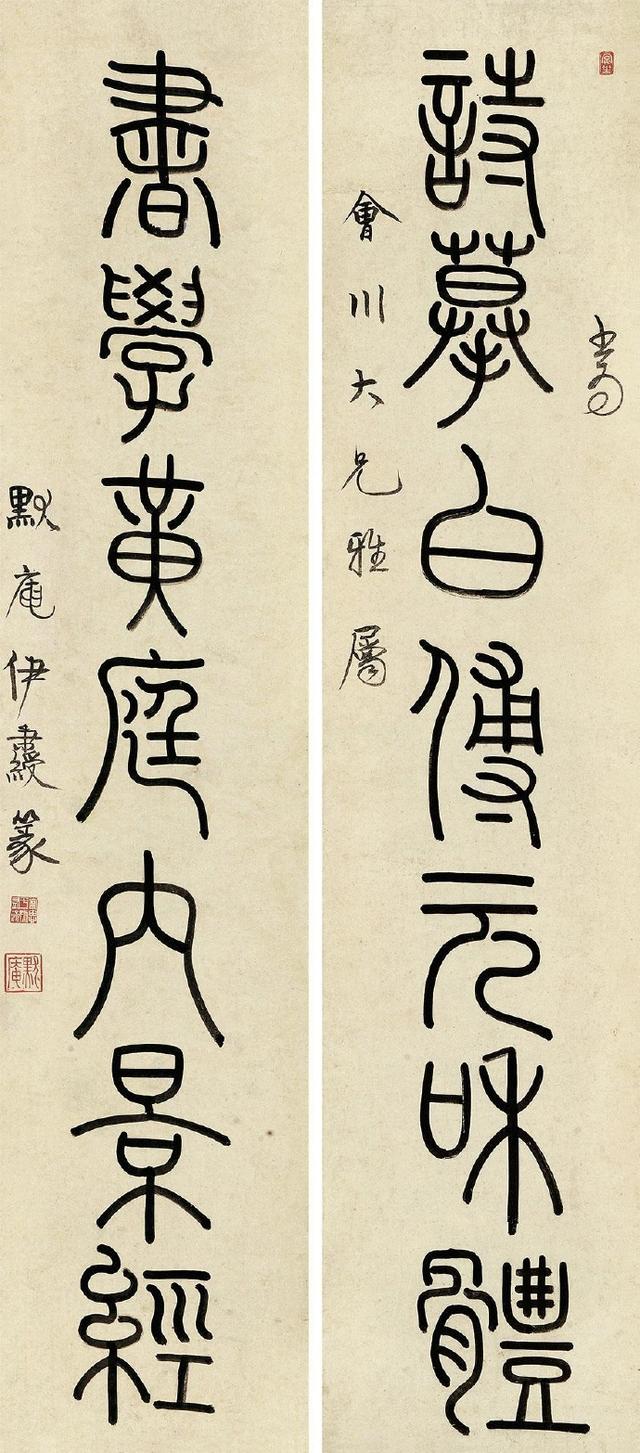 詩摹白傅元和體
會川大兄雅屬
書學黃庭內景經
默庵伊念曾篆
默庵